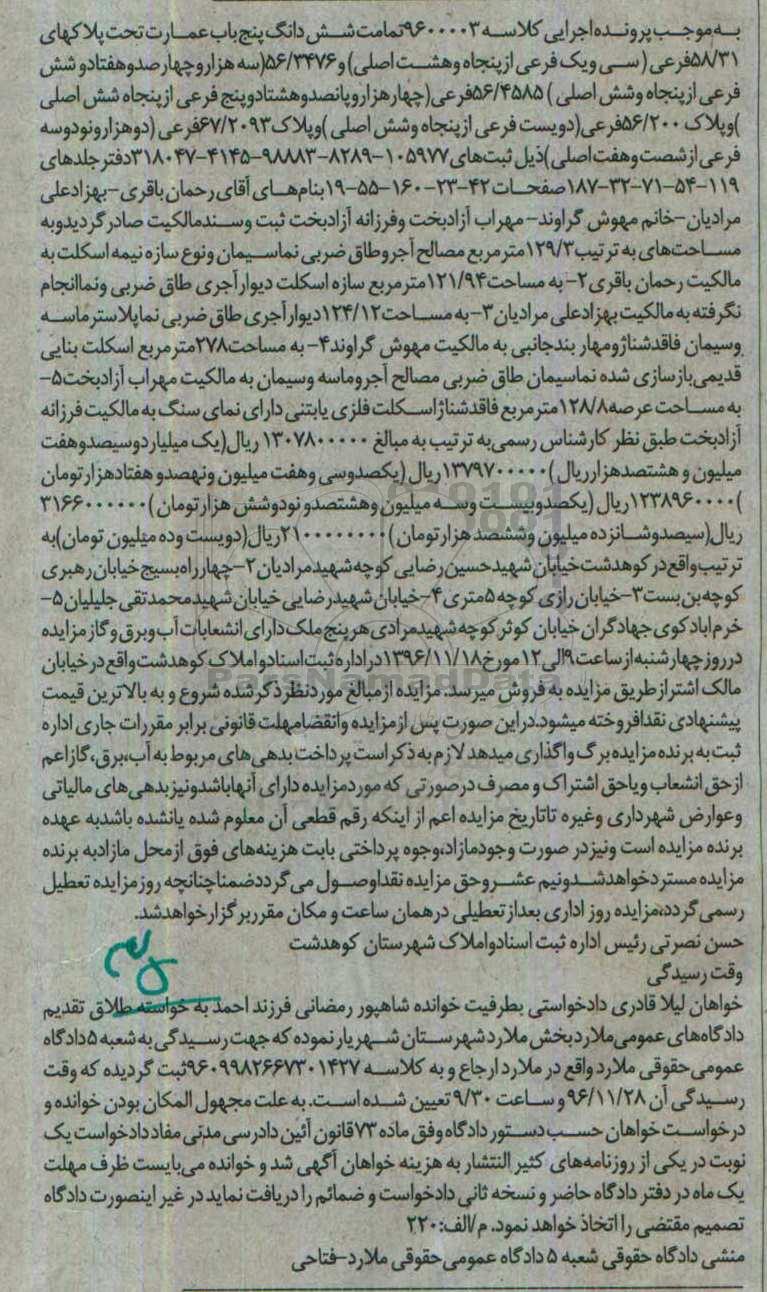 به موجب پرونده اجرایی کلاسه ۹۶۰۰۰۰۳تمامت شش دانگ پنج باب عمارت تحت پلاکهای
۵۸/۳۱فرعی (سی ویک فرعی ازپنجاه وهشت اصلی)و۵۶/۳۴۷۶(سه هزاروچهارصدوهفتادو شش
فرعی ازپنجاه وشش اصلی ) ۵۶/۴۵۸۵فرعی(چهارهزاروپانصدوهشتادوپنج فرعی ازپنجاه شش اصلی
)وپلاک ۵۶/۲۰۰فرعی(دویست فرعی ازپنجاه وشش اصلی )وپلاک۶۷/۲۰۹۳فرعی (دوهزارونودوسه
فرعی ازشصت وهفت اصلی)ذیل ثبت های۱۰۵۹۷۷-۸۲۸۹-۹۸۸۸۳-۴۱۴۵-۳۱۸۰۴۷دفترجلدهای
۱۱۹-۵۴-۷۱-۳۲-۱۸۷صفحات۴۲-۲۳-۱۶۰-۵۵-۱۹بنام های آقای رحمان باقری-بهزادعلی
مرادیان-خانم مهوش گراوند- مهراب آزادبخت وفرزانه آزادبخت ثبت وسندمالکیت صادرگردیدوبه
مساحت های به ترتیب۱۲۹/۳مترمربع مصالح آجروطاق ضربی نماسیمان ونوع سازه نیمه اسکلت به
مالکیت رحمان باقری۲- به مساحت۱۲۱/۹۴مترمربع سازه اسکلت دیوارآجری طاق ضربی ونماانجام
نگرفته به مالکیت بهزادعلی مرادیان۳-به مساحت۱۲۴/۱۲دیوارآجری طاق ضربی نماپلاسترماسه
وسیمان فاقدشناژومهار بندجانبی به مالکیت مهوش گراوند۴- به مساحت۲۷۸مترمربع اسکلت بنایی
قدیمی بازسازی شده نماسیمان طاق ضربی مصالح آجروماسه وسیمان به مالکیت مهراب آزادبخت۵-
به مساحت عرصه۱۲۸/۸مترمربع فاقدشناژاسکلت فلزی یابتنی دارای نمای سنگ به مالکیت فرزانه
آزادبخت طبق نظر کارشناس رسمی به ترتیب به مبالغ ۱۳۰۷۸۰۰۰۰۰ ریال(یک میلیاردوسیصدوهفت
میلیون و هشتصدهزارریال )۱۳۷۹۷۰۰۰۰۰ریال (یکصدوسی وهفت میلیون ونهصدو هفتادهزارتومان
)۱۲۳۸۹۶۰۰۰۰ریال (یکصدوبیست وسه میلیون وهشتصدو نودوشش هزارتومان )۳۱۶۶۰۰۰۰۰۰
ریال(سیصدوشانزده میلیون وششصد هزارتومان )۲۱۰۰۰۰۰۰۰۰ریال(دویست وده میلیون تومان)به
ترتیب واقع در کوهدشت خیابان شهیدحسین رضایی کوچه شهیدمرادیان۲-چهارراه بسیج خیابان رهبری
کوچه بن بست۳-خیابان رازی کوچه۵متری۴-خیابان شهیدرضایی خیابان شهیدمحمدتقی جلیلیان۵-
خرم اباد کوی جهادگران خیابان کوثرکوچه شهیدمرادی هرپنج ملک دارای انشعابات آب وبرق وگازمزایده
درروزچهارشنبه ازساعت۹الی۱۲مورخ۱۳۹۶/۱۱/۱۸دراداره ثبت اسنادواملاک کوهدشت واقع درخیابان
مالک اشترازطریق مزایده به فروش میرسد. مزایده ازمبالغ موردنظرذکرشده شروع و به بالاترین قیمت
پیشنهادی نقدافروخته میشود.دراین صورت پس ازمزایده وانقضامهلت قانونی برابر مقررات جاری اداره
ثبت به برنده مزایده برگ واگذاری میدهد لازم به ذکر است پرداخت بدهی های مربوط به آب،برق،گازاعم
ازحق انشعاب ویاحق اشتراک و مصرف درصورتی که موردمزایده دارای آنهاباشدونیزبدهی های مالیاتی
وعوارض شهرداری وغیره تاتاریخ مزایده اعم از اینکه رقم قطعی آن معلوم شده یانشده باشدبه عهده
برنده مزایده است ونیزدر صورت وجودمازاد،وجوه پرداختی بابت هزینه های فوق ازمحل مازادبه برنده
مزایده مستردخواهدشدونیم عشروحق مزایده نقداوصول می گرددضمناچنانچه روزمزایده تعطیل
رسمی گردد،مزایده روز اداری بعدازتعطیلی درهمان ساعت و مکان مقرربرگزارخواهدشد.
حسن نصرتی رئیس اداره ثبت اسنادواملاک شهرستان کوهدشت
وقت رسیدگی
خواهان لیلا قادری دادخواستی بطرفیت خوانده شاهپور رمضانی فرزند احمد به خواسته طلاق تقدیم
دادگاه های عمومی ملاردبخش ملاردشهرستان شهریارنموده که جهت رسیدگی به شعبه ۵دادگاه
عمومی حقوقی ملاردواقع در ملارد ارجاع و به کلاسه ۹۶۰۹۹۸۲۶۶۷۳۰۱۴۲۷ثبت گردیده که وقت
رسیدگی آن ۹۶/۱۱/۲۸و ساعت ۹/۳۰تعیین شده است. به علت مجهول المکان بودن خوانده و
درخواست خواهان حسب دستور دادگاه وفق ماده ۷۳قانون آئین دادرسی مدنی مفاد دادخواست یک
نوبت در یکی از روزنامه های کثیر النتشار به هزینه خواهان آگهی شد و خوانده می بایست ظرف مهلت
یک ماه در دفتر دادگاه حاضر و نسخه ثانی دادخواست و ضمائم را دریافت نماید در غیر اینصورت دادگاه
تصمیم مقتضی را اتخاذ خواهد نمود. م/الف:۲۲۰
منشی دادگاه حقوقی شعبه ۵ دادگاه عمومی حقوقی ملارد-فتاحی
ParsNamadData